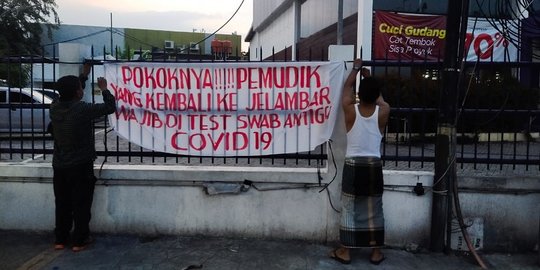 POKOKNYA!!!!! PEMUDIK
YANG KEMBALI KE JELAMBAR
WAJIB DI TEST SWAB ANTIGEN
COVID 19
Cuci Gudang
Cat Tembok
Sisa Proyek
70%